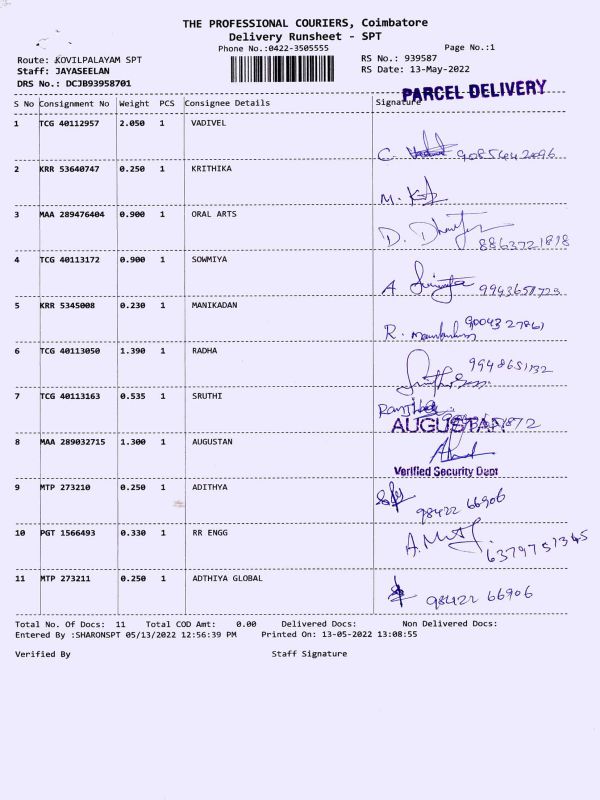 THE PROFESSIONAL COURIERS, Coimbatore
Delivery Runsheet - SPT
Phone No.:0422-3505555
Page No.:1
Route: KOVILPALAYAM SPT
RS No.: 939587
Staff: JAYASEELAN
RS Date: 13-May-2022
DRS No.: DCJB93958701
PARCEL DELIVERY
S No Consignment No Weight PCS Consignee Details Signature
1 TCG 40112957 2.050 1 VADIVEL
C.
2 KRR 53640747 0.250 1 KRITHIKA
M.
3 MAA 289476404 0.900 1 ORAL ARTS
D. 8863721898
4 TCG 40113172 0.900 1 SOWMIYA
A 9943651723
5 KRR 5345008 0.230 1 MANIKADAN
R. 90043 27861
6 TCG 40113050 1.390 1 RADHA
9948651132
7 TCG 40113163 0.535 1 SRUTHI
AUGUSTAN
8 MAA 289032715 1.300 1 AUGUSTAN
Verified Security Dept
9 MTP 273210 0.250 1 ADITHYA
98422 66906
10 PGT 1566493 0.330 1 RR ENGG
6379751345
11 MTP 273211 0.250 1 ADTHIYA GLOBAL
98422 66906
Total No. Of Docs: 11 Total COD Amt: 0.00 Delivered Docs: Non Delivered Docs:
Entered By :SHARONSPT 05/13/2022 12:56:39 PM Printed On: 13-05-2022 13:08:55
Verified By Staff Signature